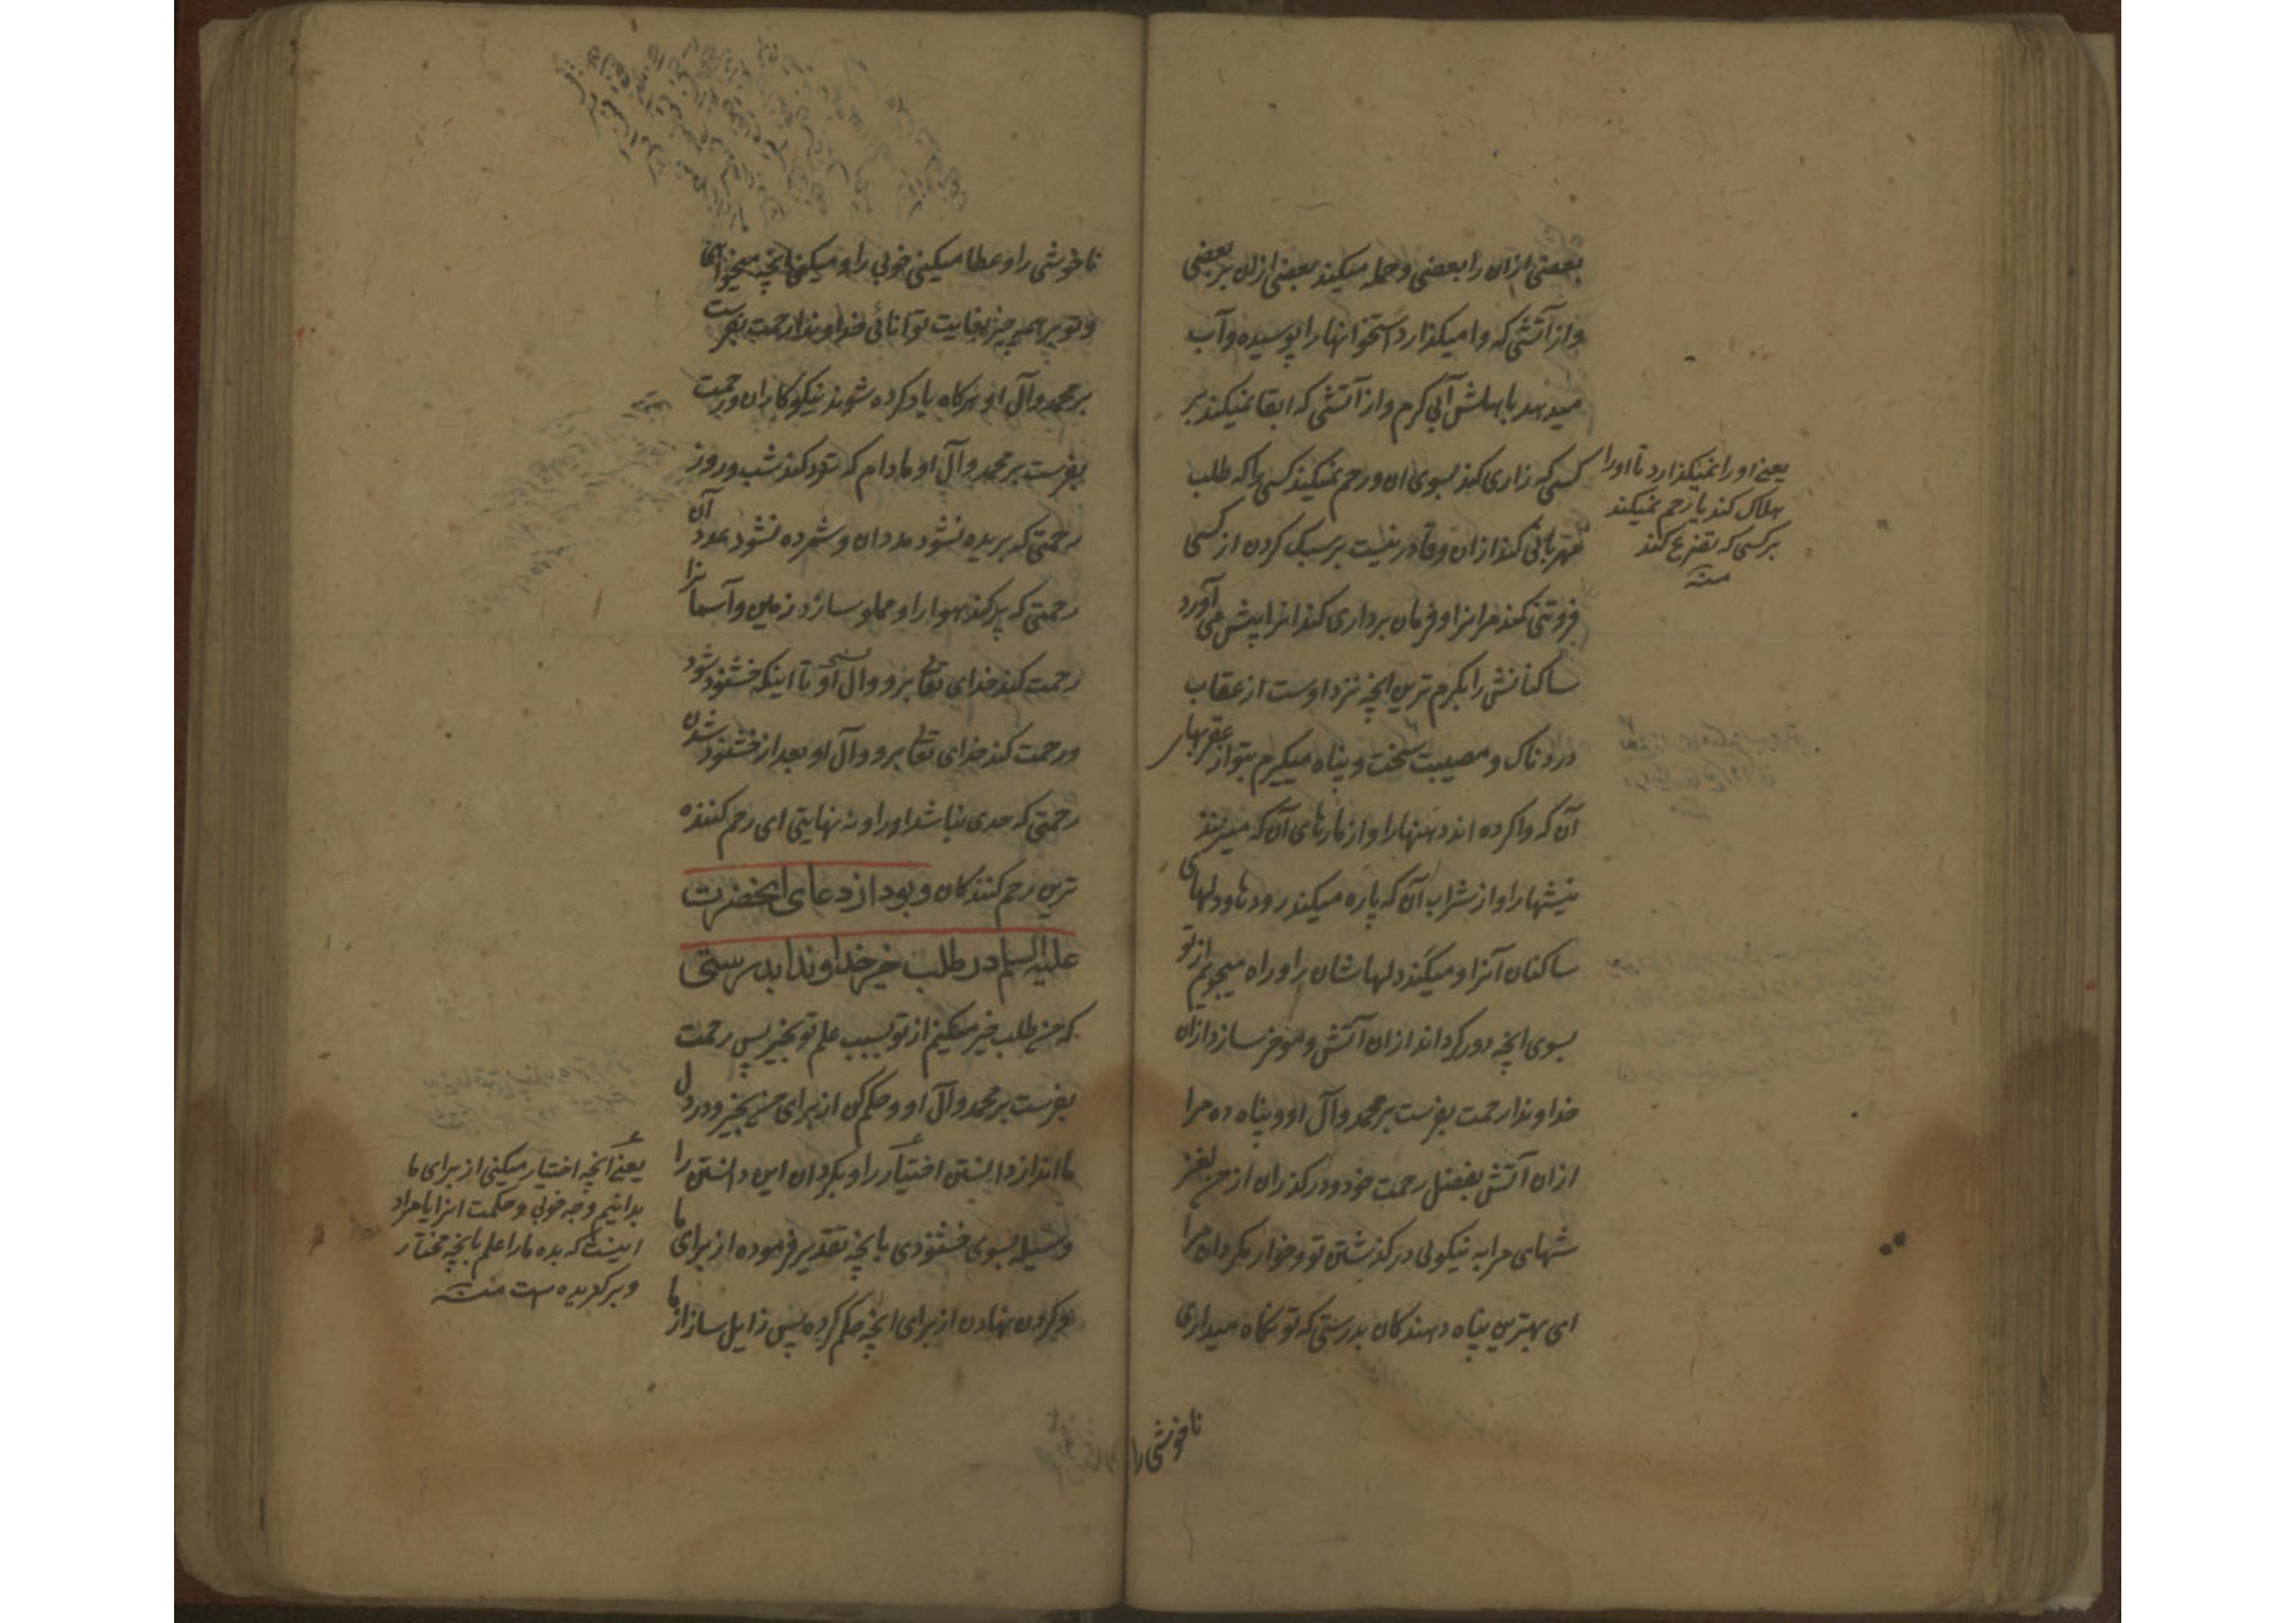 بعضی ازان را بعضی و حمله میکند بعضی ازان بر بعضی
و از آتشی که وا میکذارد استخوانها را پوسیده و آب
میدهد باهلش آبی کرم و از آتشی که ابقا نمیکند بر
کسی که زاری کند بسوی ان و رحم نمیکند کسی را که طلب
مهربانی کند ازان و قادر نیست بر سبک کردن از کسی
فروتنی کند مر انرا و فرمان برداری کند انرا پیش می آورد
ساکنانش را بکرم ترین انچه نزد اوست از عقاب
دردناک و مصیبت سخت و پناه میکیرم بتو از عقربهای
آن که وا کرده اند دهنها را و از مارهای آن که میزنند
نیشها را و از شراب آن که پاره میکند رودها و دلهای
ساکنان آنرا و میکند دلهاشان را و راه میجویم از تو
بسوی انچه دور کرداند ازان آتش و موخر سازد ازان
خداوندا رحمت بفرست بر محمد و آل او و پناه ده مرا
ازان آتش بفضل رحمت خود و درکذران از من لغز
شهای مرا به نیکوئی درکذشتن تو و خوار مکردان مرا
ای بهترین پناه دهندکان بدرستی که تو نکاه میداری
ناخوشی را
یعنی او را نمیکذارد تا او را
هلاک کند یا رحم نمیکند
بر کسی که تضرع کند
منه
ناخوشی را و عطا میکینی خوبی را و میکنی انچه میخواهی
و تو بر همه چیز بغایت توانائی خداوندا رحمت بفرست
بر محمد و آل او هرکاه یاد کرده شوند نیکوکاران و رحمت
بفرست بر محمد و آل او مادام که تردد کند شب و روز
رحمتی که بریده نشود مدد ان و شمرده نشود عدد آن
رحمتی که پر کند هوا را و مملو سازد زمین و آسمانرا
رحمت کند خدای تعالی برو و آل او تا اینکه خشنود شود
و رحمت کند خدای تعالی برو و آل او بعد از خشنود شدن
رحمتی که حدی نباشد او را و نه نهایتی ای رحم کننده
ترین رحم کنندکان و بود از دعای انحضرت
علیه السلم در طلب خیر خداوندا بدرستی
که من طلب خیر میکنم از تو بسبب علم تو بخیر پس رحمت
بفرست بر محمد و آل او و حکم کن از برای من بخیر و در دل
ما انداز دانستن اختیار را و بکردان این دانستن را
وسیله بسوی خشنودی بانچه تقدیر فرموده از برای ما
و کردن نهادن از برای انچه حکم کرده پس زایل ساز از ما
یعنی انچه اختیار میکنی از برای ما
بدانیم وجه خوبی و حکمت انرا یا مراد
اینست که بده ما را علم بانچه مختار
و برکزیده است منه